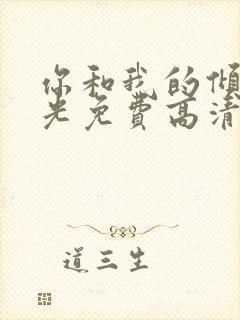 你和我的倾
光免費高清
道三生